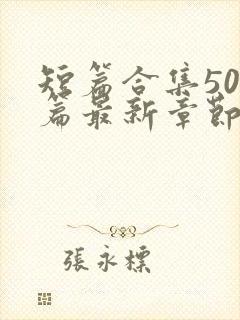 短篇合集50
篇最新章節
張永標